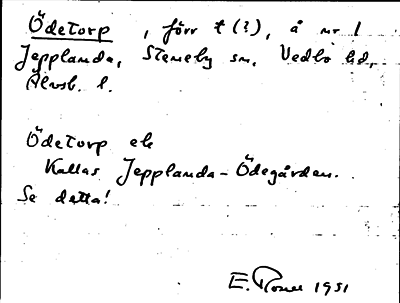 Ödetorp, förr t (?), å nr 1
Jepplanda, Steneby sn, Vedbo hd,
Älvsb. l.
Ödetorp el
Kallas Jepplanda-Ödegården.
Se detta!
E. 1951